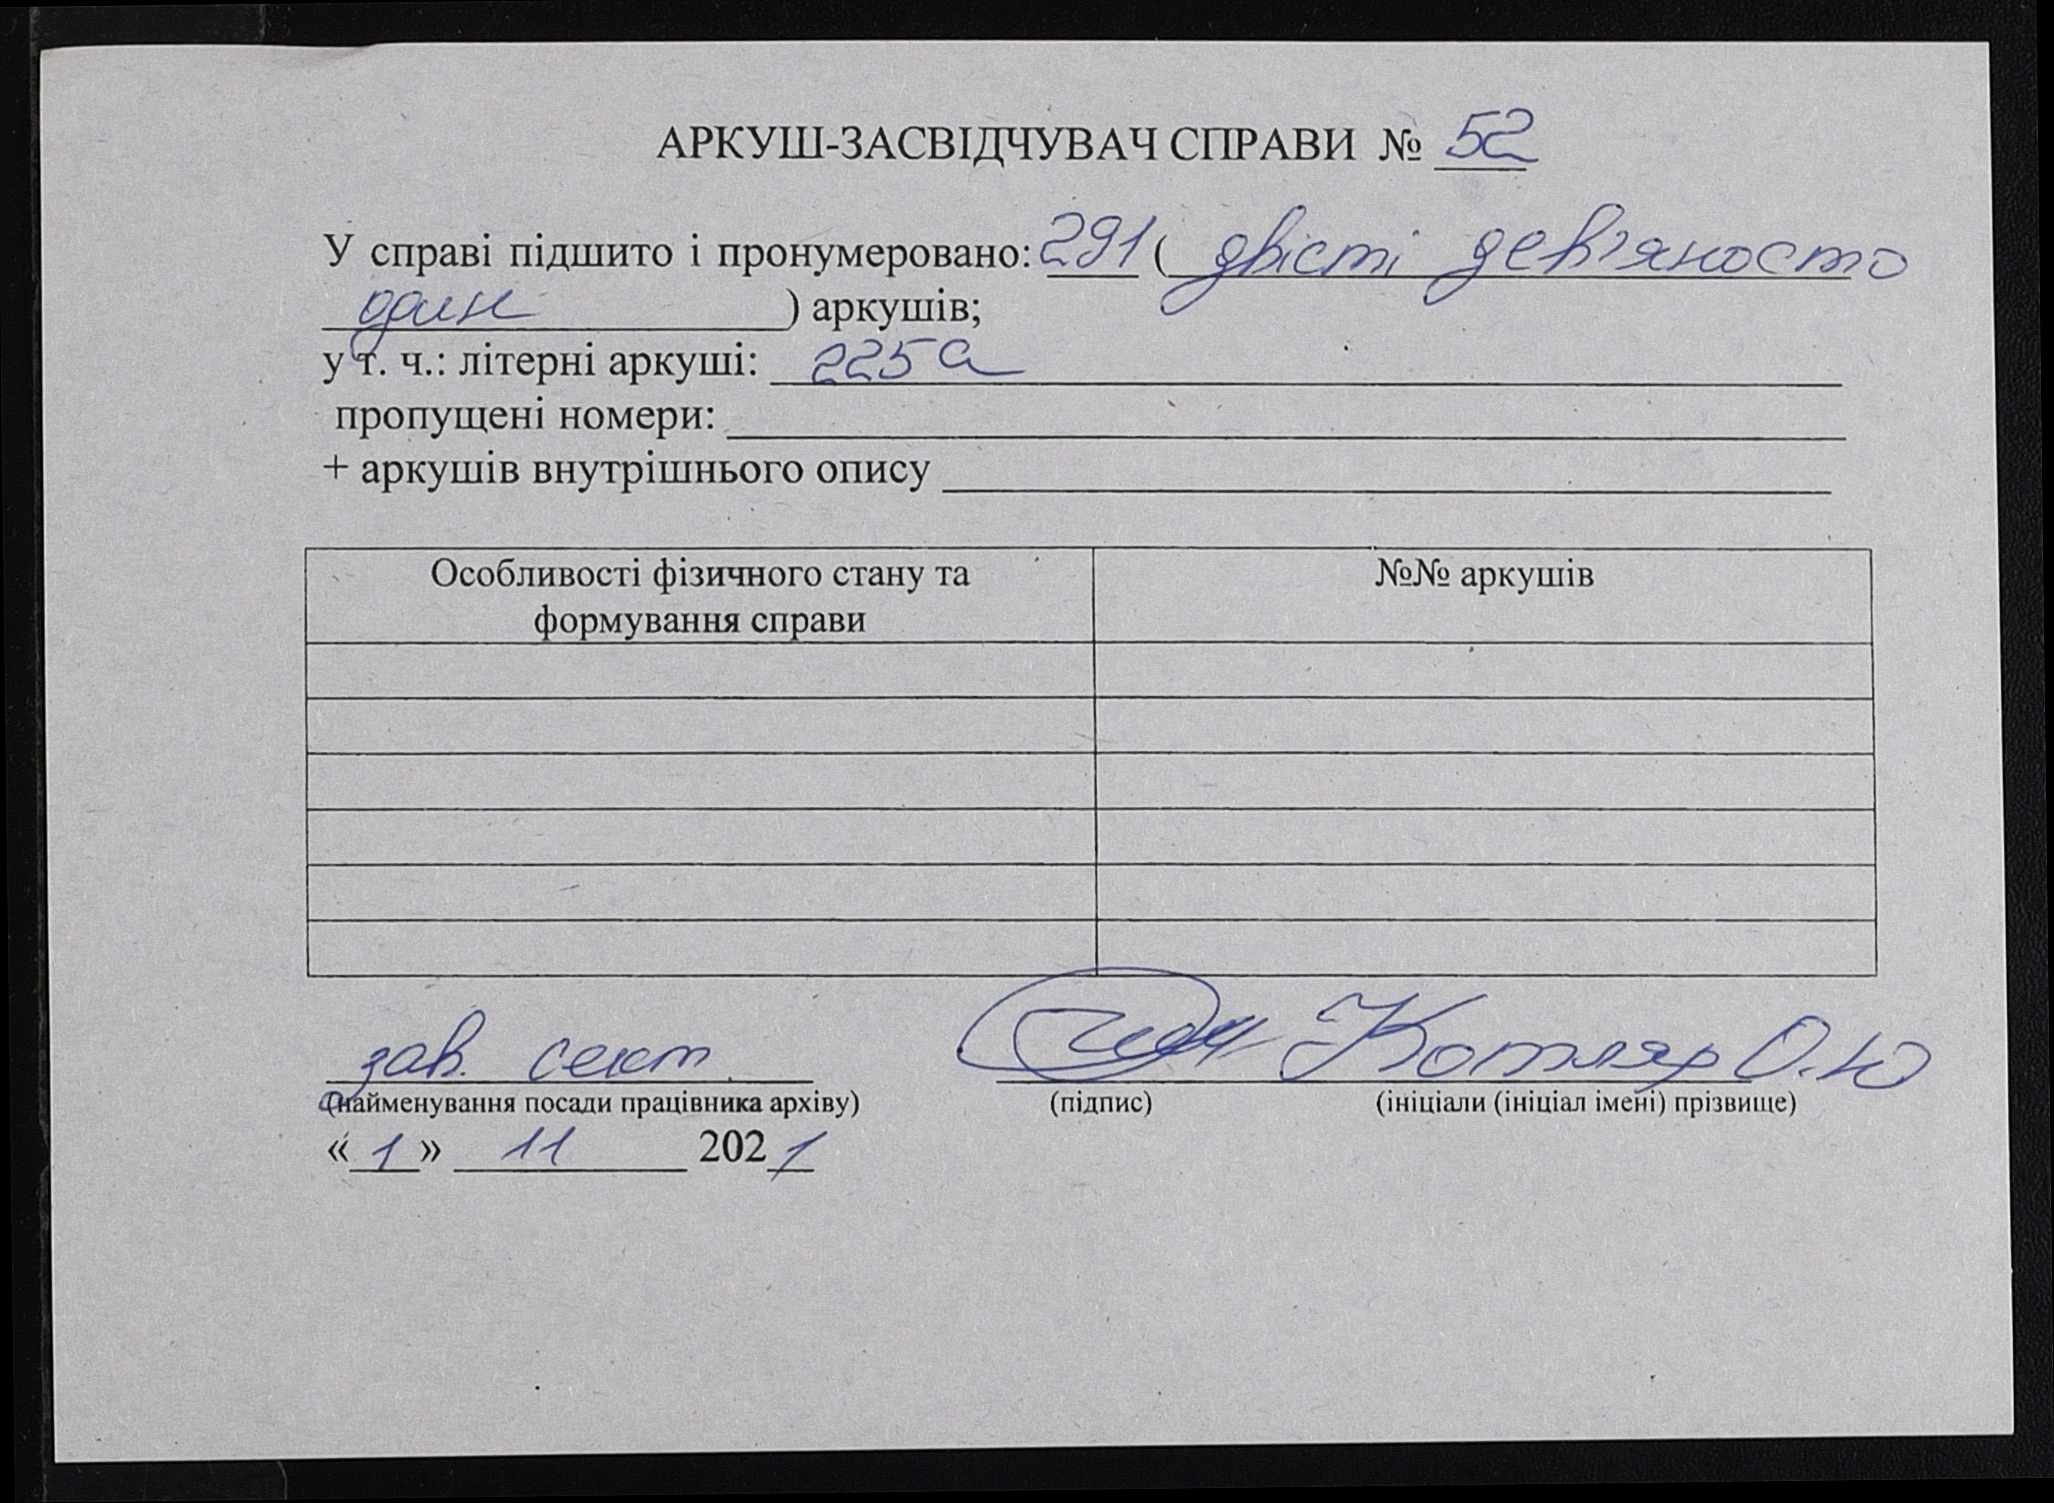 АРКУШ-ЗАСВІДЧУВАЧ СПРАВИ № 52
У справі підшито і пронумеровано: 291 ( двісті дев'яносто
один ) аркушів;
у т. ч.: літерні аркуші: 225а
пропущені номери:
+ аркушів внутрішнього опису
Особливості фізичного стану та формування справи
№№ аркушів
зав. сект. Котляр О.Ю
(найменування посади працівника архіву) (підпис) (ініціали (ініціал імені) прізвище)
«1» 11 2021